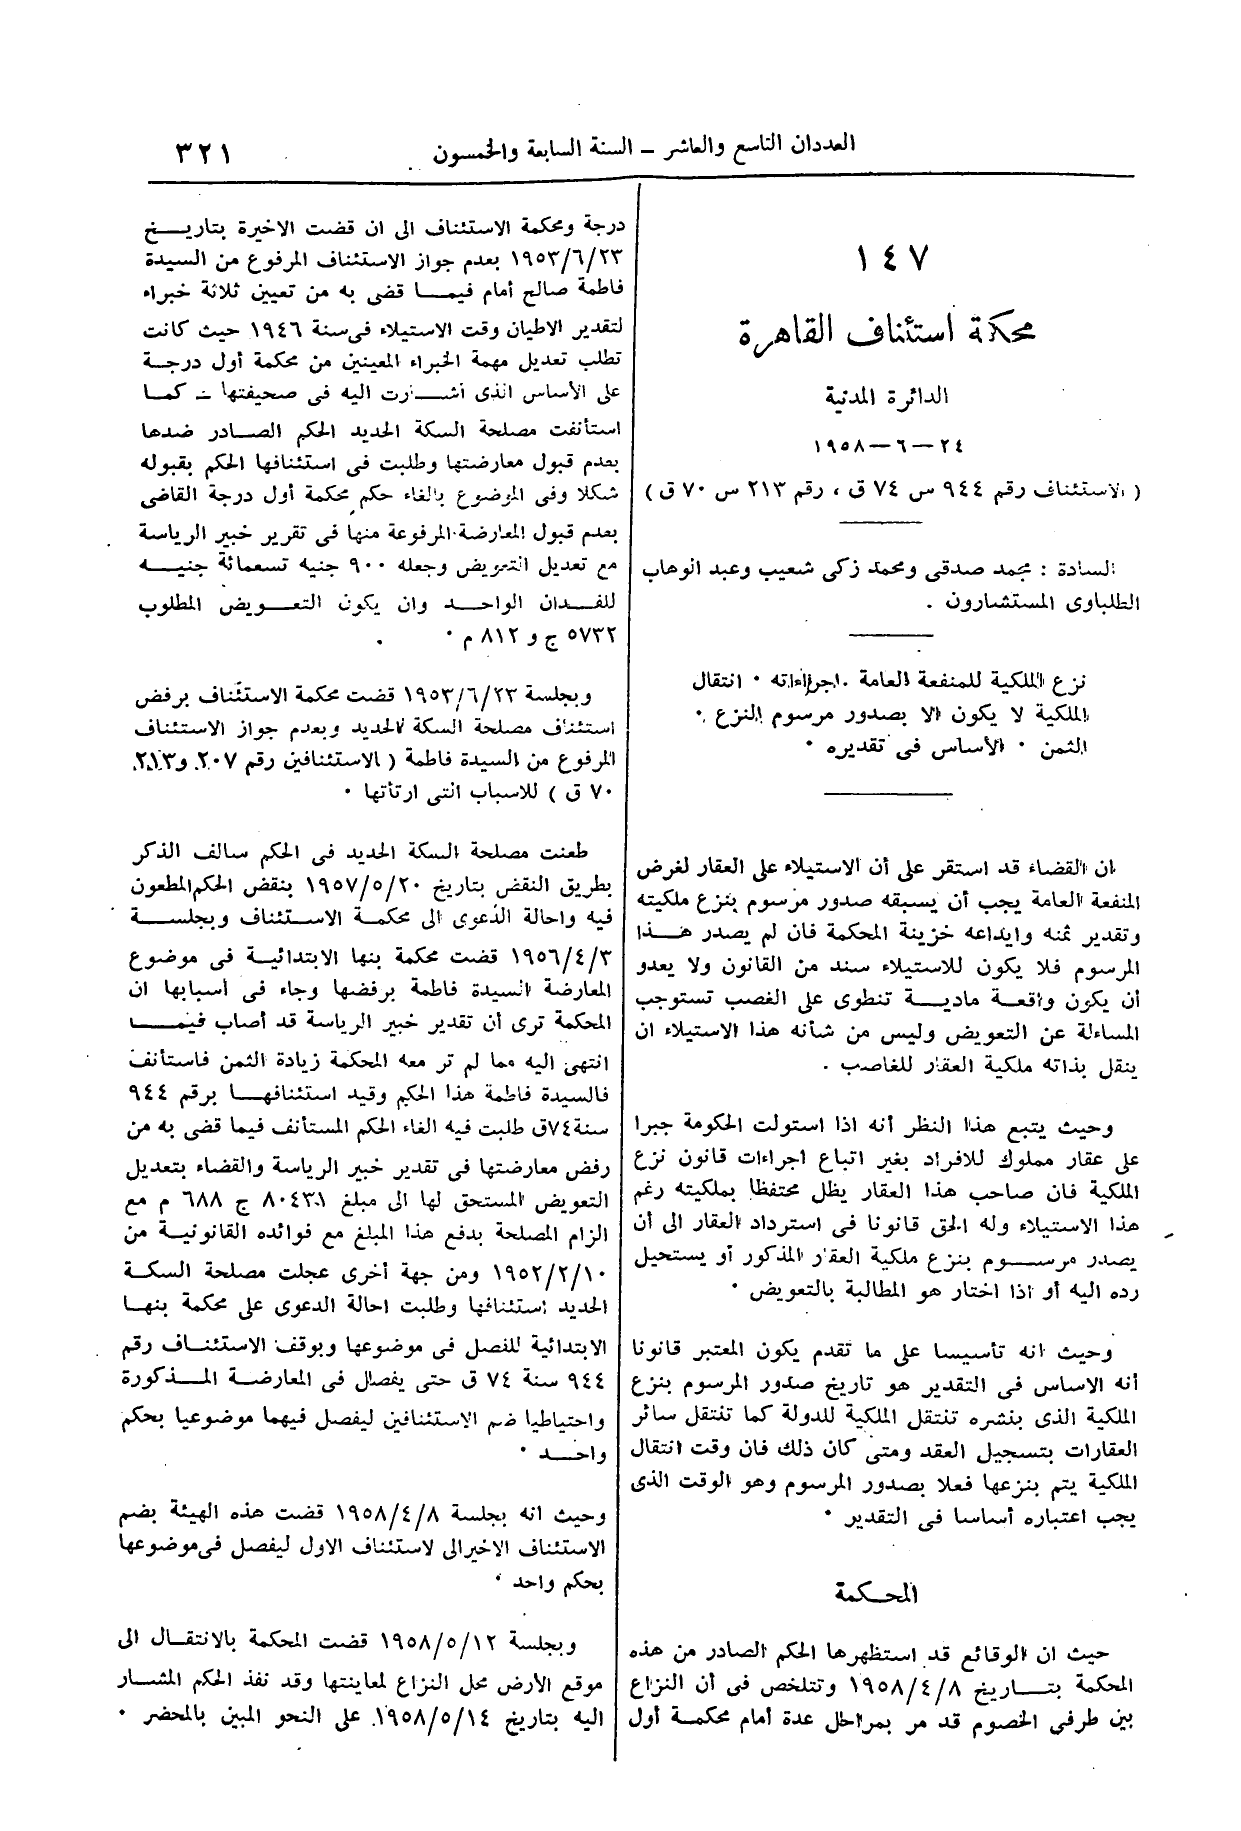 العددان التاسع والعاشر — السنة السابعة والخمسون
٣٢١
١٤٧
محكمة استئناف القاهرة
الدائرة المدنية
٢٤—٦—١٩٥٨
( الاستئناف رقم ٩٤٤ س ٧٤ ق ، رقم ٢١٣ س ٧٠ ق )
السادة : محمد صدقى ومحمد زكى شعيب وعبد الوهاب
الطلباوى المستشارون .
نزع الملكية للمنفعة العامة . اجراءاته . انتقال
الملكية لا يكون الا بصدور مرسوم النزع .
الثمن . الأساس فى تقديره .
ان القضاء قد استقر على أن الاستيلاء على العقار لغرض
المنفعة العامة يجب أن يسبقه صدور مرسوم بنزع ملكيته
وتقدير ثمنه وايداعه خزينة المحكمة فان لم يصدر هذا
المرسوم فلا يكون للاستيلاء سند من القانون ولا يعدو
أن يكون واقعة مادية تنطوى على الغصب تستوجب
المساءلة عن التعويض وليس من شأنه هذا الاستيلاء ان
ينقل بذاته ملكية العقار للغاصب .
وحيث يتبع هذا النظر أنه اذا استولت الحكومة جبرا
على عقار مملوك للافراد بغير اتباع اجراءات قانون نزع
الملكية فان صاحب هذا العقار يظل محتفظا بملكيته رغم
هذا الاستيلاء وله الحق قانونا فى استرداد العقار الى أن
يصدر مرسوم بنزع ملكية العقار المذكور أو يستحيل
رده اليه أو اذا اختار هو المطالبة بالتعويض .
وحيث انه تأسيسا على ما تقدم يكون المعتبر قانونا
أنه الاساس فى التقدير هو تاريخ صدور المرسوم بنزع
الملكية الذى بنشره تنتقل الملكية للدولة كما تنتقل سائر
العقارات بتسجيل العقد ومتى كان ذلك فان وقت انتقال
الملكية يتم بنزعها فعلا بصدور المرسوم وهو الوقت الذى
يجب اعتباره أساسا فى التقدير .
المحكمة
حيث ان الوقائع قد استظهرها الحكم الصادر من هذه
المحكمة بتاريخ ١٩٥٨/٤/٨ وتتلخص فى أن النزاع
بين طرفى الخصوم قد مر بمراحل عدة أمام محكمة أول
درجة ومحكمة الاستئناف الى ان قضت الاخيرة بتاريخ
١٩٥٣/٦/٢٣ بعدم جواز الاستئناف المرفوع من السيدة
فاطمة صالح أمام فيما قضى به من تعيين ثلاثة خبراء
لتقدير الاطيان وقت الاستيلاء فى سنة ١٩٤٦ حيث كانت
تطلب تعديل مهمة الخبراء المعينين من محكمة أول درجة
على الأساس الذى أشارت اليه فى صحيفتها — كما
استأنفت مصلحة السكة الحديد الحكم الصادر ضدها
بعدم قبول معارضتها وطلبت فى استئنافها الحكم بقبوله
شكلا وفى الموضوع بالغاء حكم محكمة أول درجة القاضى
بعدم قبول المعارضة المرفوعة منها فى تقرير خبير الرياسة
مع تعديل التعويض وجعله ٩٠٠ جنيه تسعمائة جنيه
للفدان الواحد وان يكون التعويض المطلوب
٥٧٣٢ ج و ٨١٢ م .
وبجلسة ١٩٥٣/٦/٢٣ قضت محكمة الاستئناف برفض
استئناف مصلحة السكة الحديد وبعدم جواز الاستئناف
المرفوع من السيدة فاطمة ( الاستئنافين رقم ٢٠٧ و ٢١٣
٧٠ ق ) للاسباب التى ارتأتها .
طعنت مصلحة السكة الحديد فى الحكم سالف الذكر
بطريق النقض بتاريخ ١٩٥٧/٥/٢٠ بنقض الحكم المطعون
فيه واحالة الدعوى الى محكمة الاستئناف وبجلسة
١٩٥٦/٤/٣ قضت محكمة بنها الابتدائية فى موضوع
المعارضة السيدة فاطمة برفضها وجاء فى أسبابها ان
المحكمة ترى أن تقدير خبير الرياسة قد أصاب فيما
انتهى اليه مما لم تر معه المحكمة زيادة الثمن فاستأنف
فالسيدة فاطمة هذا الحكم وقيد استئنافها برقم ٩٤٤
سنة ٧٤ق طلبت فيه الغاء الحكم المستأنف فيما قضى به من
رفض معارضتها فى تقدير خبير الرياسة والقضاء بتعديل
التعويض المستحق لها الى مبلغ ٨٠٤٣١ ج ٦٨٨ م مع
الزام المصلحة بدفع هذا المبلغ مع فوائده القانونية من
١٩٥٢/٢/١٠ ومن جهة أخرى عجلت مصلحة السكة
الحديد استئنافها وطلبت احالة الدعوى على محكمة بنها
الابتدائية للفصل فى موضوعها وبوقف الاستئناف رقم
٩٤٤ سنة ٧٤ ق حتى يفصل فى المعارضة المذكورة
واحتياطيا ضم الاستئنافين ليفصل فيهما موضوعيا بحكم
واحد .
وحيث انه بجلسة ١٩٥٨/٤/٨ قضت هذه الهيئة بضم
الاستئناف الاخير الى لاستئناف الاول ليفصل فى موضوعها
بحكم واحد .
وبجلسة ١٩٥٨/٥/١٢ قضت المحكمة بالانتقال الى
موقع الأرض محل النزاع لمعاينتها وقد نفذ الحكم المشار
اليه بتاريخ ١٩٥٨/٥/١٤ على النحو المبين بالمحضر .